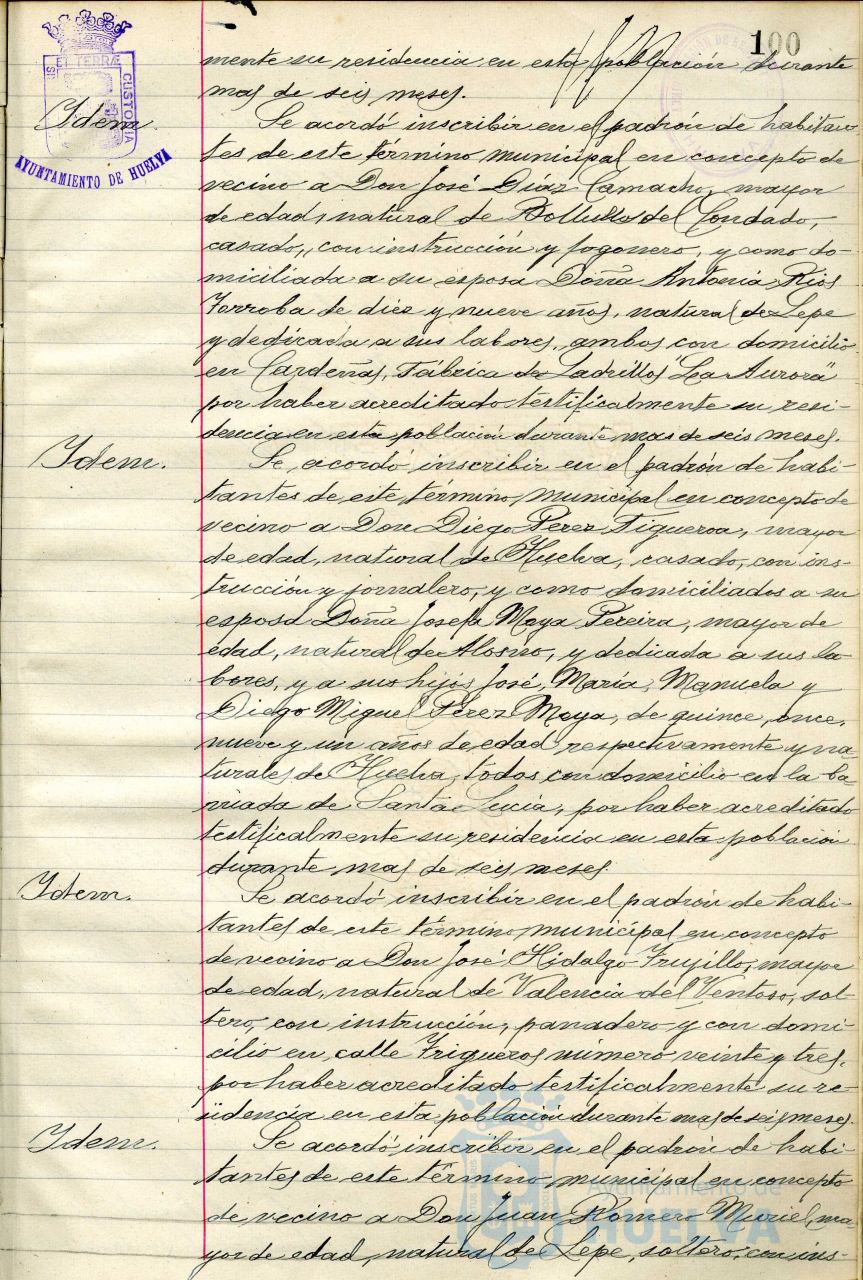 100
mente su residencia en esta población durante
mas de seis meses.
Idem.
Se acordó inscribir en el padrón de habitan-
tes de este término municipal en concepto de
vecino a Don José Díaz Camacho, mayor
de edad, natural de Bollullos del Condado,
casado, con instrucción y fogonero, y como do-
miciliada a su esposa Doña Antonia Rios
Torroba de diez y nueve años, natural de Lepe
y dedicada a sus labores, ambos con domicilio
en Cardeñas, Fábrica de Ladrillos "La Aurora"
por haber acreditado testificalmente su resi-
dencia en esta población durante mas de seis meses.
Idem.
Se acordó inscribir en el padrón de habi-
tantes de este término municipal en concepto de
vecino a Don Diego Perez Figueroa, mayor
de edad, natural de Huelva, casado, con ins-
trucción y jornalero, y como domiciliados a su
esposa Doña Josefa Moya Pereira, mayor de
edad, natural de Alosno, y dedicada a sus la-
bores, y a sus hijos José, María, Manuela y
Diego Miguel Pérez Moya, de quince, once,
nueve y un años de edad respectivamente y na-
turales de Huelva, todos con domicilio en la ba-
rriada de Santa Lucia, por haber acreditado
testificalmente su residencia en esta población
durante mas de seis meses.
Idem.
Se acordó inscribir en el padrón de habi-
tantes de este término municipal en concepto
de vecino a Don José Hidalgo Trujillo, mayor
de edad, natural de Valencia del Ventoso, sol-
tero, con instrucción, panadero y con domi-
cilio en calle Trigueros número veinte y tres,
por haber acreditado testificalmente su re-
sidencia en esta población durante mas de seis meses.
Idem.
Se acordó inscribir en el padrón de habi-
tantes de este término municipal en concepto
de vecino a Don Juan Romero Muriel, ma-
yor de edad, natural de Lepe, soltero, con ins-
ET TERRÆ CUSTODIA
AYUNTAMIENTO DE HUELVA
Ayuntamiento de
HUELVA